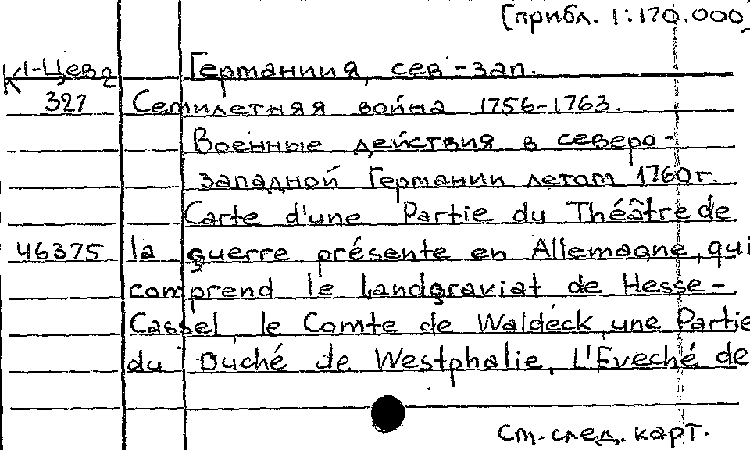 [прибл. 1:170.000]
К1-Цев2 Германия, сев-зап.
327 Семилетняя война 1756-1763.
Военные действия в северо-
западной Германии летом 1760г.
Carte d'une Partie du Théâtre de
46375 la guerre présente en Allemagne, qui
comprend le Landgraviat de Hesse-
Cassel, le Comte de Waldeck, une Partie
du Duché de Westphalie, L'Eveché de
См. след. карт.